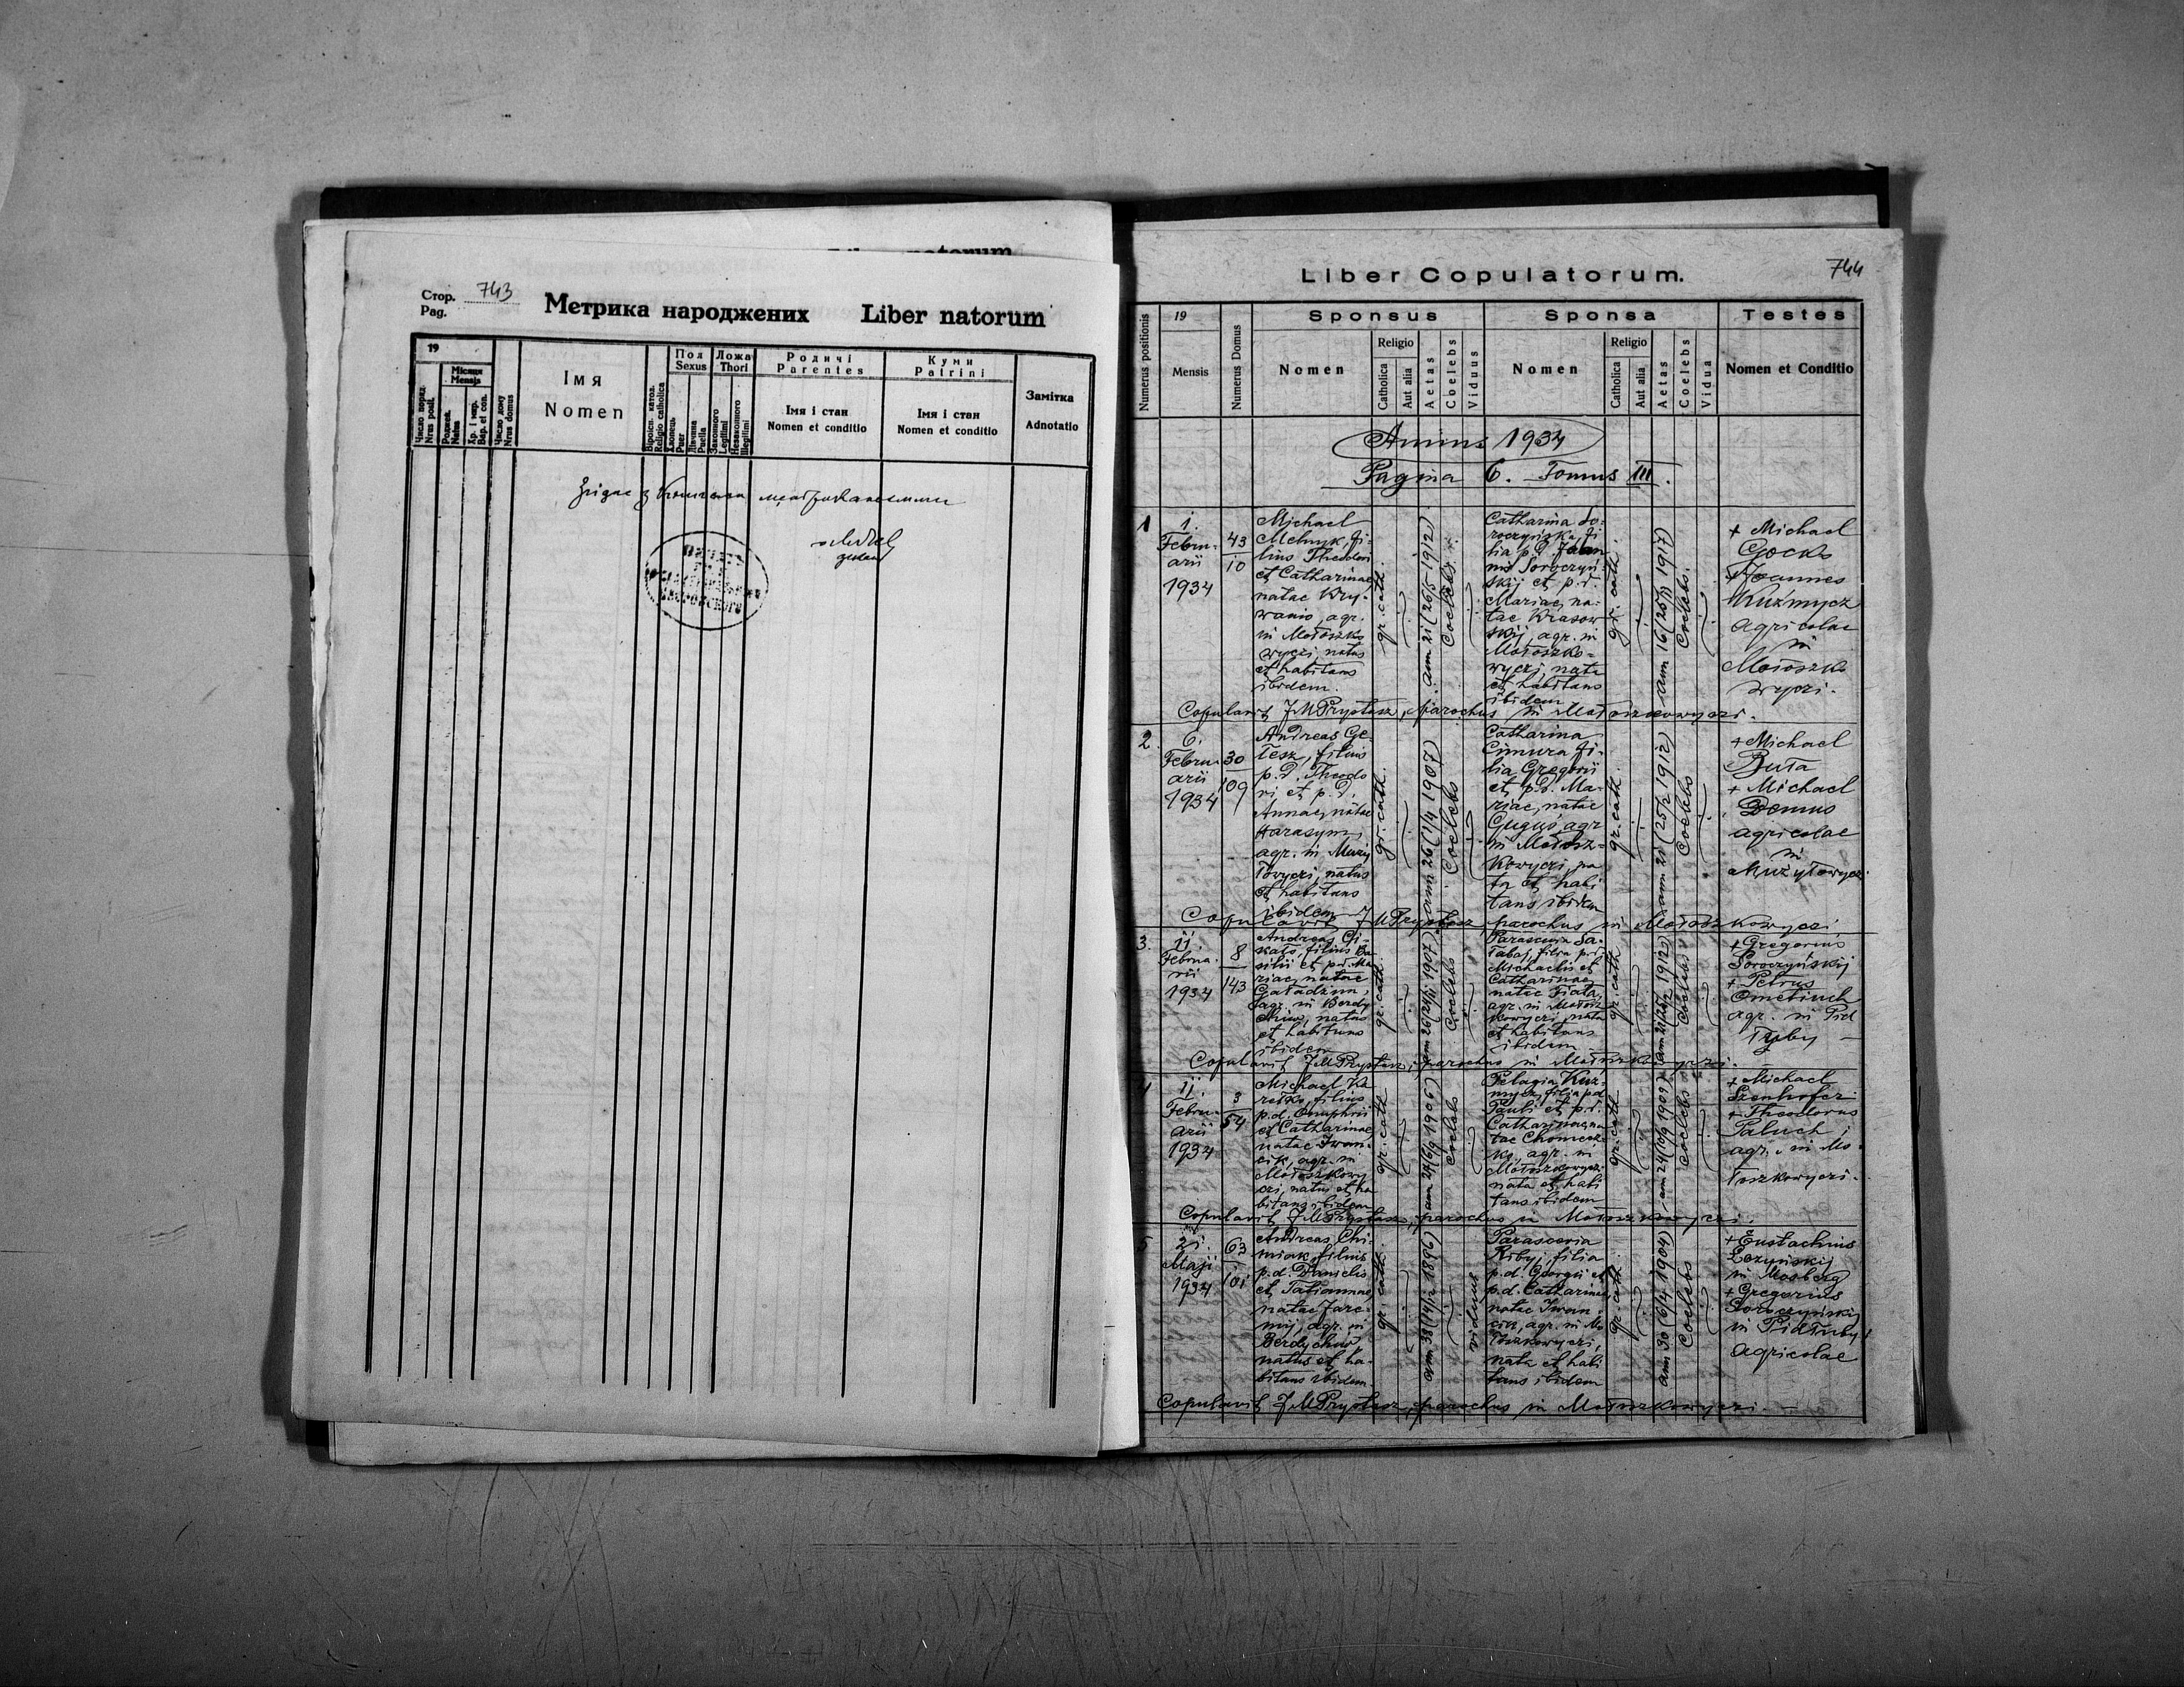 Стор. 743
Pag.
Метрика народжених Liber natorum
19
Місяця
Mensis
Число поряд.
Nrus posit.
Роджен.
Natus
Хр. і мир.
Bap. et con.
Число дому
Nrus domus
Імя
Nomen
Віроісп. катол.
Religio catholica
Пол
Sexus
Хлопець
Puer
Дівчина
Puella
Ложа
Thori
Законного
Legitimi
Незаконного
Illegitimi
Родичі
Parentes
Імя і стан
Nomen et conditio
Куми
Patrini
Імя і стан
Nomen et conditio
Замітка
Adnotatio
744
Liber Copulatorum.
Numerus positionis
19
Mensis
Numerus Domus
Sponsus
Nomen
Religio
Catholica
Aut alia
Aetas
Coelebs
Viduus
Sponsa
Nomen
Religio
Catholica
Aut alia
Aetas
Coelebs
Vidua
Testes
Nomen et Conditio
Annus 1934
Pagina 6. Tomus III.
1
1.
Febru-
arii
1934
43
10
Michael
Melnyk, fi-
lius Theodori
et Catharinae,
natae Kry-
wanio, agr.
in Mołoszko
wyczi, natus
et habitans
ibidem.
gr. cath.
ann 21 (26/5 1912)
Coelebs
Catharina So-
roczyńska, fi-
lia p.d. Joan-
nis Soroczyń-
skij et p.d.
Mariae, na-
tae Krasow
skij, agr. in
Mołoszko-
wyczi, nata
et habitans
ibidem
gr. cath.
Coelebs.
+ Michael
Gocko
+ Joannes
Kuźmycz
agricolae
in
Mołoszko
wyczi.
Copulavit J M Prystasz, parochus in Mołoszkowyczi.
2
6.
Febru-
arii
1934
30
109
Andreas Ge-
łesz, filius
p.d. Theodo
ri et p.d.
Annae, natae
Harasym,
agr. in Muży
łowyczi, natus
et habitans
ibidem
gr. cath.
ann 26 (1/4 1907)
Coelebs
Catharina
Cimura fi-
lia Gregorii
et p.d. Ma-
riae, natae
Guguś, agr
in Mołosz-
kowyczi, na
ta et habi
tans ibidem
gr. cath.
ann 21 (25/2 1912)
Coelebs
+ Michael
Buła
+ Michael
Domus
agricolae
in
Mużyłowyczi
Copulavit J M Prystasz, parochus in Mołoszkowyczi.
3.
11.
Februa-
rii
1934
8
143
Andreas Gi-
kało, filius Ba
silii et p.d. Ma
riae, natae
Gaładżun,
agr. in Berdy
chiw, natus
et habitans
ibidem
gr. cath.
Coelebs
Parascevia Sa-
łabaj, filia p.d.
Michaelis et
Catharinae
natae Fiała,
agr. in Mołosz
kowyczi, nata
et habitans
ibidem
gr. cath
Coelebs
+ Gregorius
Soroczyńskij
+ Petrus
Ometiuch
agr. in Pid
łuby
Copulavit J M Prystasz, parochus in Mołoszkowyczi.
4
11.
Febru-
arii
1934
3
54
Michael Ka
rełko, filius
p.d. Onuphrii
et Catharinae,
natae Iwan-
cik, agr. in
Mołoszkowy
czi, natus et ha
bitans ibidem
gr. cath
ann 27 (6/9 1906)
Coelebs
Pelagia Kuz-
mycz, filia p.d.
Pauli et p.d.
Catharinae, na
tae Chomcz
ko, agr. in
Mołoszkowyczi
nata et habi
tans ibidem
gr. cath
Coelebs
+ Michael
Szenhofer
+ Theodorus
Paluch,
agr. in Mo-
łoszkowyczi.
Copulavit J M Prystasz, parochus in Mołoszkowyczi.
5
21.
Maji
1934
63
101
Andreas Chi-
miak, filius
p.d. Danielis
et Tatiannae,
natae Jare-
mij, agr. in
Berdychiw,
natus et ha-
bitans ibidem.
gr. cath.
viduus
Parascevia
Ribyj, filia
p.d. Georgii et
p.d. Catharinae,
natae Iwan-
cik, agr. in Mo
łoszkowyczi,
nata et habi
tans ibidem
gr. cath.
Coelebs
+ Eustachius
Łozyńskij
in Mosberg
+ Gregorius
Soroczyńskij
in Pidłuby,
agricolae
Copulavit J M Prystasz, parochus in Mołoszkowyczi.